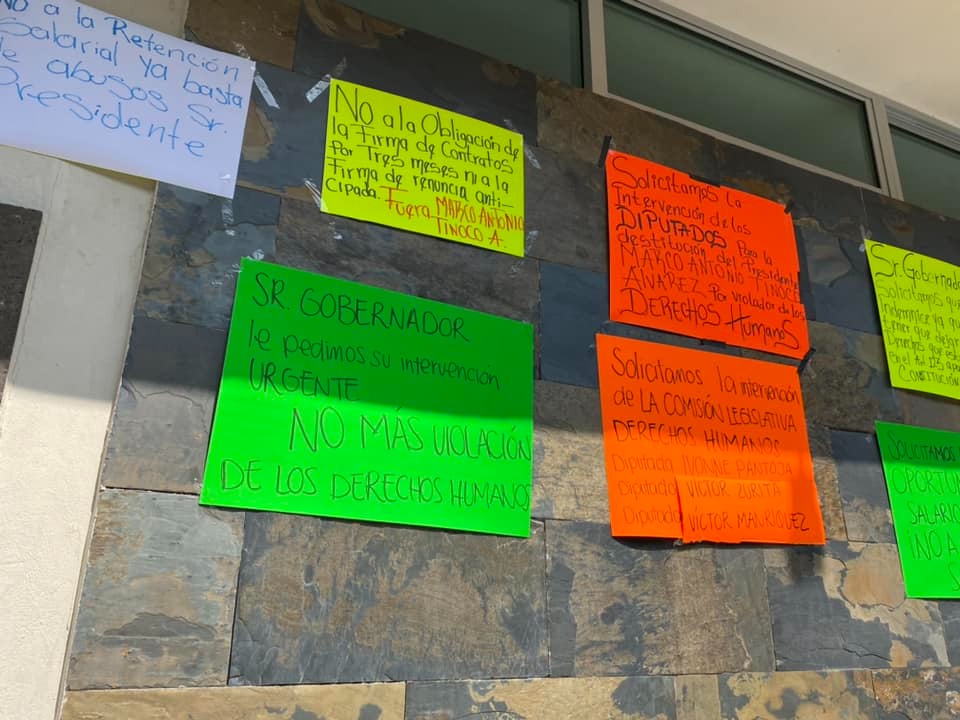 NO a la Retención
Salarial Ya basta
de abusos Sr.
Presidente
NO a la Obligación de
la Firma de Contratos
Por Tres meses ni a la
Firma de renuncia anti-
cipada. Fuera MARCO ANTONIO
TINOCO A.
SR. GOBERNADOR
le pedimos su intervención
URGENTE
NO MÁS VIOLACIÓN
DE LOS DERECHOS HUMANOS
Solicitamos La
Intervención de los
DIPUTADOS Para la
destitución del Presidente
MARCO ANTONIO TINOCO
ÁLVAREZ Por violador de los
DERECHOS HumanoS
Solicitamos la intervención
de LA COMISIÓN LEGISLATIVA
DERECHOS HUMANOS
Diputada IVONNE PANTOJA
Diputado VICTOR ZURITA
Diputado VÍCTOR MANRIQUEZ
Sr. Gobernado
Solicitamos que
indemnice ya qu
tener que dejar
Derechos que est
en el Art 123 apa
Constitución
SOLICITAMOS
OPORTUN
SALARIO
¡NO A
S